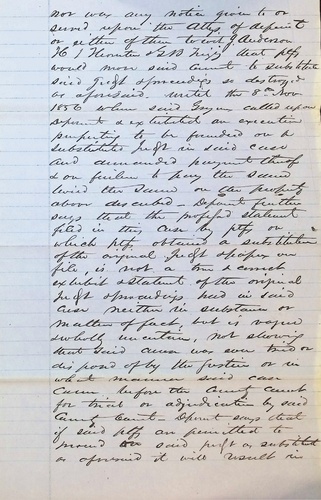 nor was any notice given to or
served upon the Attys of deponent
or either of them to wit Anderson
H J Hunter & G B that ptff
would move said Court to substitute
said Judgt & proceedings so destroyed
as aforesaid, until the 8th Nov
1856 when said called upon
deponent & exhibited an execution
purporting to be founded on a
substituted Judgt in said case
and demanded payment thereof
& on failure to pay the same
levied the same on the property
above described - Deponent further
says that the statement
filed in this case by ptff on
which ptff obtained a substitution
of the original Judgt & papers on
file, is not a true & correct
exhibit & statement of the original
Judgt & proceedings had in said
case neither in substance or
matter of fact, but is vague
& wholly uncertain, not showing
that said cause was ever tried or
disposed of by the Justice or in
what manner said case
came before the Court
for trial or adjudication by said
Court - Deponent says that
if said ptff is permitted to
said judgt as substituted
as aforesaid it will result in